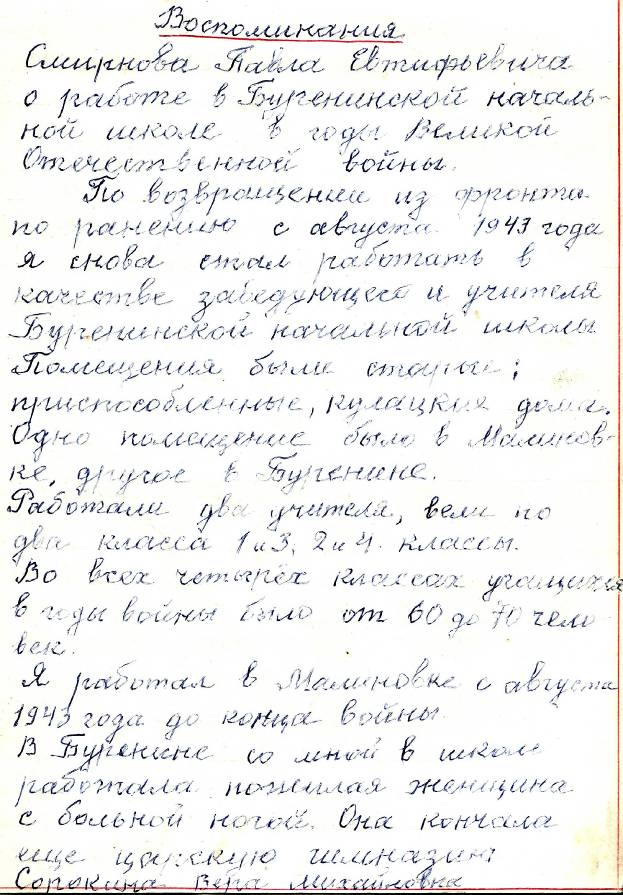 Воспоминания
Смирнова Павла Евтифьевича
о работе в Буренинской началь-
ной школе в годы Великой
Отечественной войны.
По возвращении из фронта
по ранению с августа 1943 года
я снова стал работать в
качестве заведующего и учителя
Буренинской начальной школы
Помещения были старые;
приспособленные, кулацких дома.
Одно помещение было в Малинов-
ке, другое в Буренине.
Работали два учителя, вели по
два класса 1 и 3, 2 и 4. классы.
Во всех четырёх классах учащихся
в годы войны было от 60 до 70 чело
век.
Я работал в Малиновке с августа
1943 года до конца войны
В Буренине со мной в школе
работала пожилая женщина
с больной ногой. Она кончала
еще царскую гимназию
Сорокина Вера Михайловна